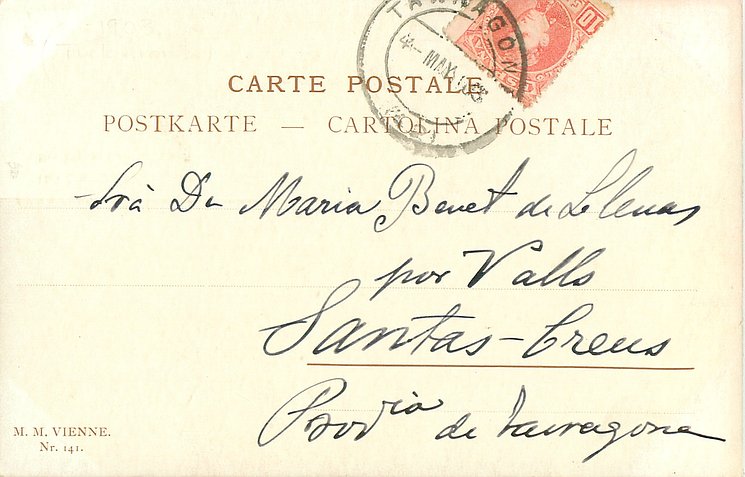 TARRAGONA
4 - MAY 05
10
CARTE POSTALE
POSTKARTE — CARTOLINA POSTALE
Srà Da Maria Benet de Llenas
por Valls
Santas-Creus
Provia de Tarragona
M. M. VIENNE.
Nr. 141.